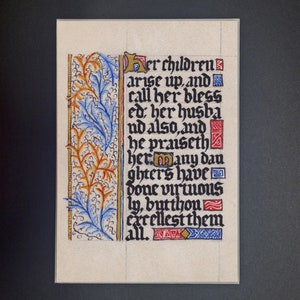 Her children
arise up, and
call her bless
ed: her husba
nd also, and
he praiseth
her. Many dau
ghters have
done virtuous
ly, but thou
excellest them
all.